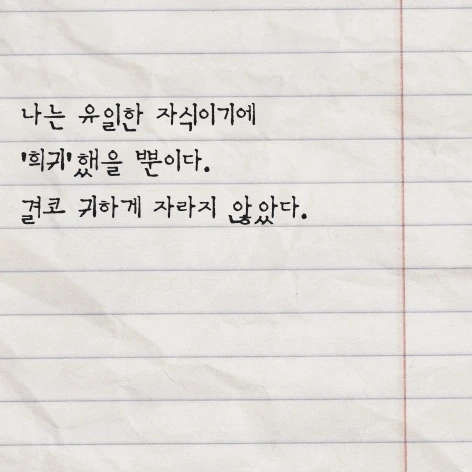 나는 유일한 자식이기에
'희귀'했을 뿐이다.
결코 귀하게 자라지 않았다.